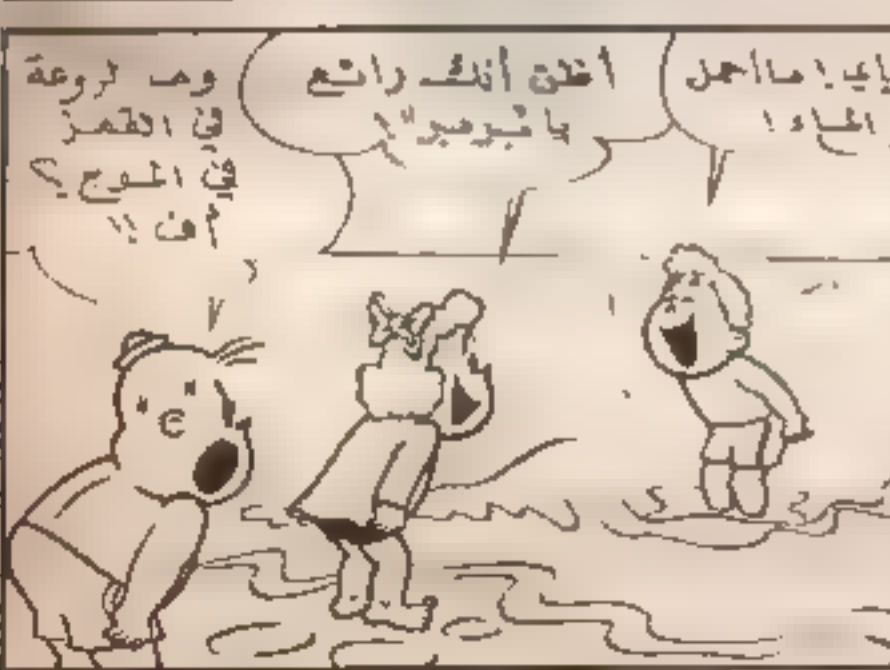 ياي! ما أجمل
الماء!
أظن أنك رائع
يا
وما لروعة
في القفز
في الموج؟
أف!!